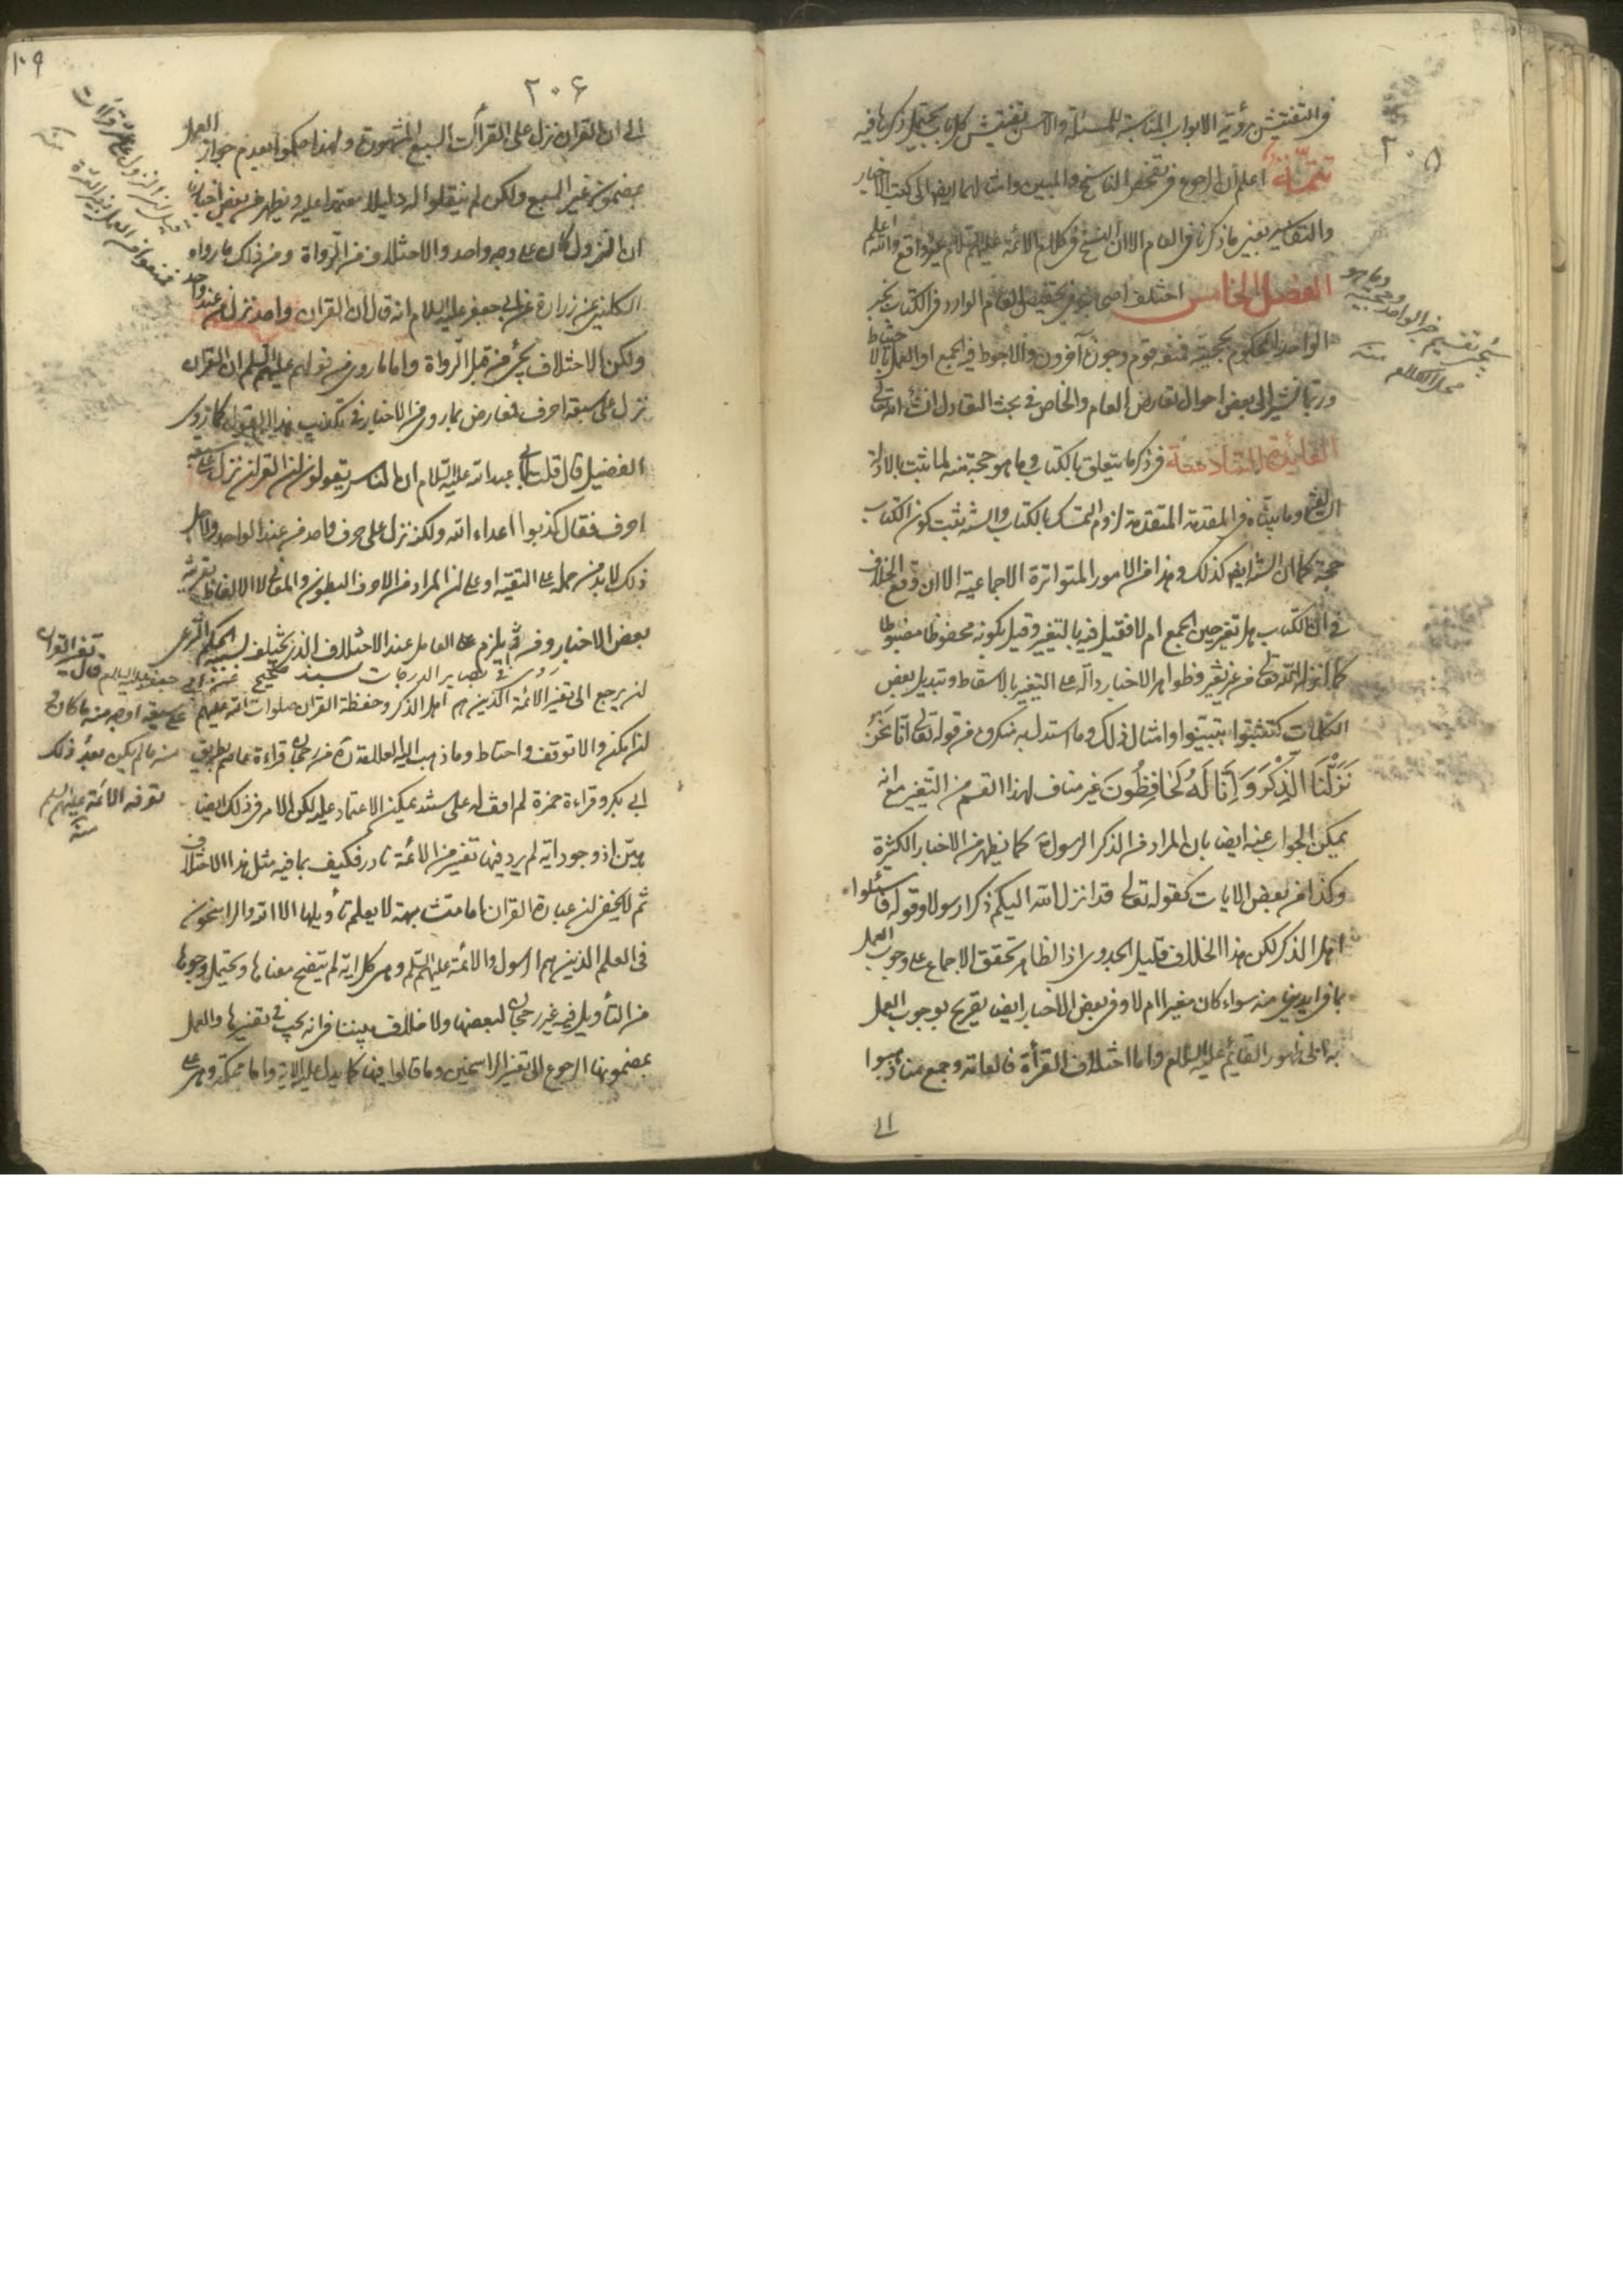 ٢٠٥
فى التفتيش رؤية الابواب المناسبة للمسئلة والاحسن تفتيش كل باب يحتمل ذكرها فيه
تتمّة اعلم ان الرجوع فى تفحص الناسخ والمبين وامثالهما ايضا الى كتب الاخبار
والتفاسير بعين ما ذكرنا فى العام الا ان النسخ فى كلام الائمة عليهم السلام غير واقع والله اعلم
الفصل الخامس اختلف اصحابنا فى تخصيص العام الوارد فى الكتاب بخبر
الواحد المحكوم بحجيته فمنعه قوم وجوزه آخرون والاحوط فيه الجمع او العمل بالاحتياط
وربما نشير الى بعض احوال تعارض العام والخاص فى بحث التعادل انشاء الله تعالى
الفايدة السادسة فى ذكر ما يتعلق بالكتاب وما هو حجة منه لما ثبت بالادلة
وما بيناه فى المقدمة المتقدمة لزوم التمسك بالكتاب والسنة ثبت كون الكتاب
حجة كما ان السنة ايضا كذلك وهذا من الامور المتواترة الاجماعية الا ان وقع الخلاف
فى ان الكتاب هل تغير حين الجمع ام لا فقيل فيه بالتغيير وقيل بكونه محفوظا مضبوطا
كما انزله الله تعالى من غير تغير وظواهر الاخبار دالة على التغيير بالاسقاط وتبديل بعض
الكلمات كتثبتوا بتبينوا وامثال ذلك وما استدل به منكروه من قوله تعالى انا نَحْنُ
نَزَّلْنَا الذِّكْرَ وَ اِنَّا لَهُ لَحَافِظُونَ غير مناف لهذا القسم من التغيير مع انه
يمكن الجواب عنه ايضا بان المراد من الذكر الرسول ص كما يظهر من الاخبار الكثيرة
وكذا من بعض الايات كقوله تعالى قد انزل الله اليكم ذكرا رسولا وقوله فاسئلوا
اهل الذكر لكن هذا الخلاف قليل الجدوى اذ الظاهر تحقق الاجماع على وجوب العمل
بما فى ايدينا منه سواء كان مغيرا ام لا وفى بعض الاخبار ايضا تصريح بوجوب العمل
به الى ظهور القايم عليه السلام واما اختلاف القرأة فالعامة وجمع منا ذهبوا
الى
سيجئ تقسيم خبر الواحد وحجيته وما هو
محل الكلام منه
١٠٩
٢٠۶
الى ان القران نزل على القراآت السبع المشهورة ولهذا حكموا بعدم جواز العمل
بمضمون غير السبع ولكن لم ينقلوا له دليلا معتمدا عليه ويظهر من بعض اخبارنا
ان النزول كان على وجه واحد والاختلاف من الرواة ومن ذلك ما رواه
الكلينى عن زرارة عن ابى جعفر عليه السلام انه قال ان القران واحد نزل من عند واحد
ولكن الاختلاف يجئ من قبل الرواة واما ما روى من قولهم عليهم السلم ان القران
نزل على سبعة احرف فمعارض بما روى من الاخبار فى تكذيب هذا القول كما روى
الفضيل قال قلت لابى عبد الله عليه السلام ان الناس يقولون ان القران نزل على سبعة
احرف فقال كذبوا اعداء الله ولكنه نزل على حرف واحد من عند الواحد
ذلك لابد من حمله على التقية او على ان المراد من الاحرف البطون والمعانى لا الالفاظ بقرينة
بعض الاخبار وح يلزم على العامل عند الاختلاف الذى يختلف بسببه الحكم الشرعى
ان يرجع الى تفسير الائمة الذين هم اهل الذكر وحفظة القران صلوات الله عليهم
ان امكنه والا توقف واحتاط وما ذهب اليه العلامة من رجحان قراءة عاصم بطريق
ابى بكر وقراءة حمزة لم اقف له على سند يمكن الاعتماد عليه لكن الامر فى ذلك ايضا
هيّن اذ وجود اية لم يرد فيها تفسير من الائمة نادر فكيف بما فيه مثل هذا الاختلاف
ثم لا يخفى ان عبارة القران اما متشابهة لا يعلم تأويلها الا الله والراسخون
فى العلم الذين هم الرسول والائمة عليهم السلم وهى كل اية لم يتضح معناها ويحتمل وجوها
من التأويل فيه غير رجحان لبعضها ولا خلاف بيننا فى انه يجب فى تفسيرها والعمل
بمضمونها الرجوع الى تفسير الراسخين وما قالوا فيها كما يدل عليه الاية واما محكمة وهى
روى فى بصاير الدرجات بسند صحيح عن ابى جعفر عليه السلام قال تفسير القران
على سبعة اوجه منه ما كان و
منه ما لم يكن بعد ذلك
تعرفه الائمة عليهم السلم
منه